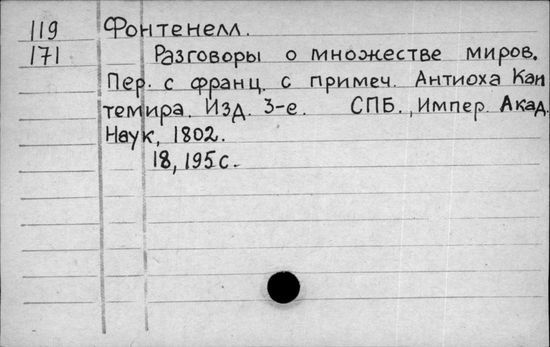 119 Фонтенелл.
171 Разговоры о множестве миров.
Пер. с франц. с примеч. Антиоха Кан
темира. Изд. 3-е. СПБ., Импер. Акад.
Наук, 1802.
18, 195 с.